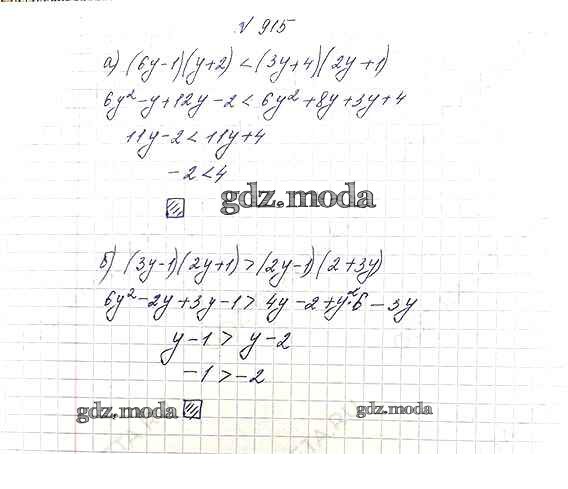 № 915
а) (6y-1)(y+2) < (3y+4)(2y+1)
6y²-y+12y-2 < 6y²+8y+3y+4
11y-2 < 11y+4
-2 < 4
gdz.moda
б) (3y-1)(2y+1) > (2y-1)(2+3y)
6y²-2y+3y-1 > 4y-2+y²·6-3y
y-1 > y-2
-1 > -2
gdz.moda
gdz.moda